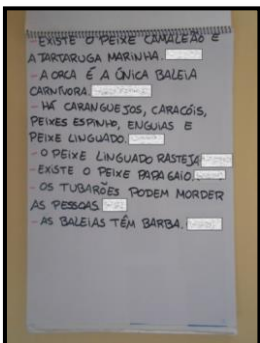 - EXISTE O PEIXE CAMALEÃO E
A TARTARUGA MARINHA.
- A ORCA É A ÚNICA BALEIA
CARNÍVORA.
- HÁ CARANGUEJOS, CARACÓIS,
PEIXES ESPINHO, ENGUIAS E
PEIXE LINGUADO.
- O PEIXE LINGUADO RASTEJA
- EXISTE O PEIXE PAPAGAIO.
- OS TUBARÕES PODEM MORDER
AS PESSOAS.
- AS BALEIAS TÊM BARBA.